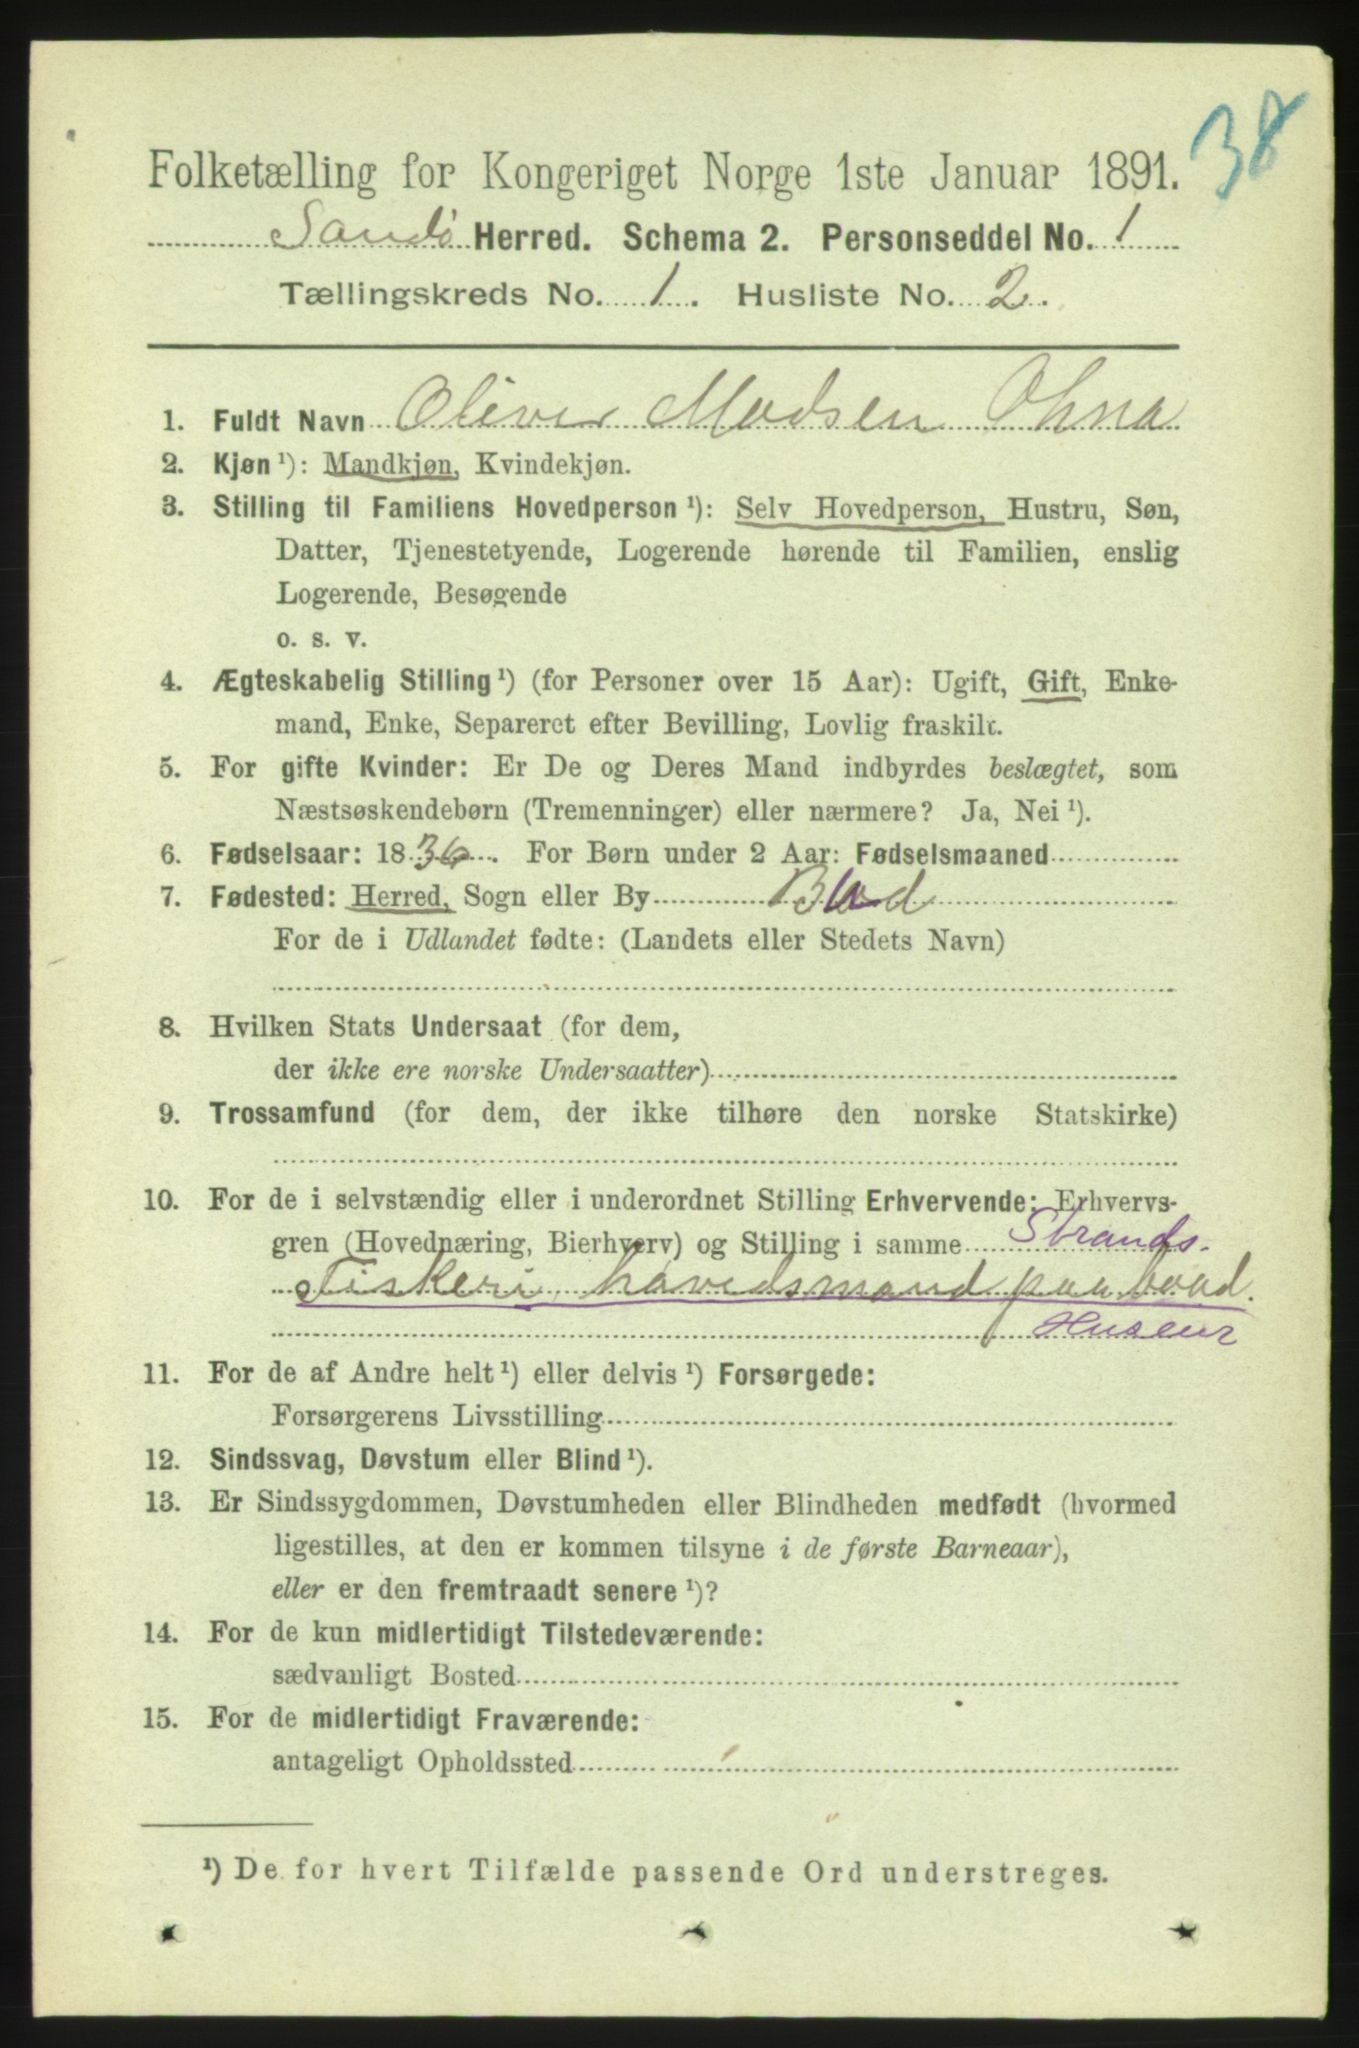 38
Folketælling for Kongeriget Norge 1ste Januar 1891.
Sandø Herred. Schema 2. Personseddel No. 1
Tællingskreds No. 1. Husliste No. 2.
1. Fuldt Navn Oliver Madsen Ohna
2. Kjøn ¹): Mandkjøn, Kvindekjøn.
3. Stilling til Familiens Hovedperson ¹): Selv Hovedperson, Hustru, Søn,
Datter, Tjenestetyende, Logerende hørende til Familien, enslig
Logerende, Besøgende
o. s. v.
4. Ægteskabelig Stilling ¹) (for Personer over 15 Aar): Ugift, Gift, Enke-
mand, Enke, Separeret efter Bevilling, Lovlig fraskilt.
5. For gifte Kvinder: Er De og Deres Mand indbyrdes beslægtet, som
Næstsøskendebørn (Tremenninger) eller nærmere? Ja, Nei ¹).
6. Fødselsaar: 1836. For Børn under 2 Aar: Fødselsmaaned
7. Fødested: Herred, Sogn eller By Bud
For de i Udlandet fødte: (Landets eller Stedets Navn)
8. Hvilken Stats Undersaat (for dem,
der ikke ere norske Undersaatter)
9. Trossamfund (for dem, der ikke tilhøre den norske Statskirke)
10. For de i selvstændig eller i underordnet Stilling Erhvervende: Erhvervs-
gren (Hovednæring, Bierhverv) og Stilling i samme Strands.
Fiskeri havedsmand paa baad.
Huseier
11. For de af Andre helt ¹) eller delvis ¹) Forsørgede:
Forsørgerens Livsstilling
12. Sindssvag, Døvstum eller Blind ¹).
13. Er Sindssygdommen, Døvstumheden eller Blindheden medfødt (hvormed
ligestilles, at den er kommen tilsyne i de første Barneaar),
eller er den fremtraadt senere ¹)?
14. For de kun midlertidigt Tilstedeværende:
sædvanligt Bosted
15. For de midlertidigt Fraværende:
antageligt Opholdssted
¹) De for hvert Tilfælde passende Ord understreges.